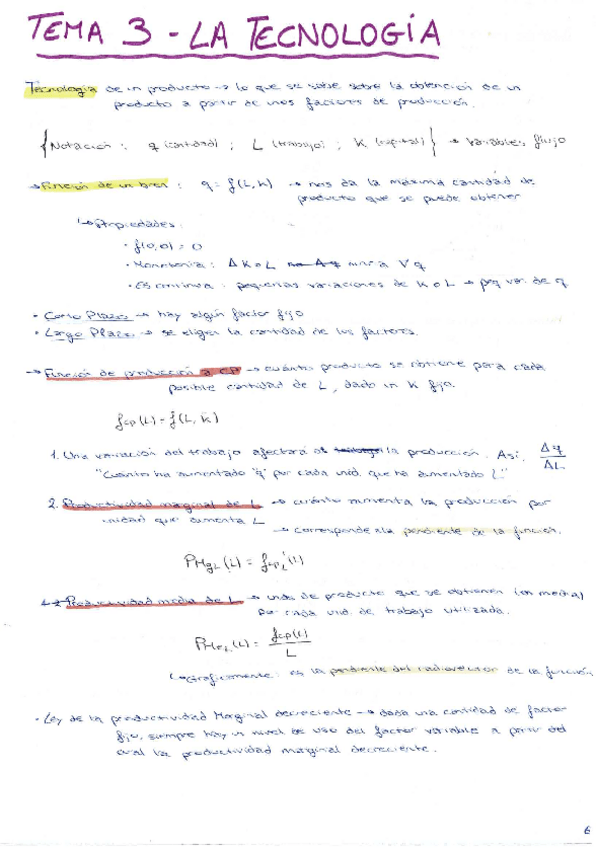 TEMA 3 - LA TECNOLOGÍA
Tecnología de un producto → lo que se sabe sobre la obtención de un
producto a partir de unos factores de producción.
{Notación: q (cantidad) ; L (trabajo) ; K (capital)} → variables flujo
→ Función de un bien: q = f(L,K) → nos da la máxima cantidad de
producto que se puede obtener
↳ Propiedades:
· f(0,0) = 0
· Monotonía: Δ K o L nunca ∇ q
· Es continua: pequeñas variaciones de K o L → peq var. de q
· Corto Plazo → hay algún factor fijo
· Largo Plazo → se eligen la cantidad de los factores.
→ Función de producción a CP → cuánto producto se obtiene para cada
posible cantidad de L, dado un K fijo.
fcp(L) = f(L, K̄)
1. Una variación del trabajo afectará a la producción. Así, Δq/ΔL
"Cuánto ha aumentado "q" por cada unid. que ha aumentado L"
2. Productividad marginal de L → cuánto aumenta la producción por
unidad que aumenta L
→ corresponde a la pendiente de la función.
PMgL(L) = fcpL'(L)
Productividad media de L → unds de producto que se obtienen (en media)
por cada unid. de trabajo utilizada.
PMeL(L) = fcp(L)/L
↳ Gráficamente: es la pendiente del radiovector de la función
· Ley de la productividad Marginal decreciente → dada una cantidad de factor
fijo, siempre hay un nivel de uso del factor variable a partir del
cual la productividad marginal decreciente.
6